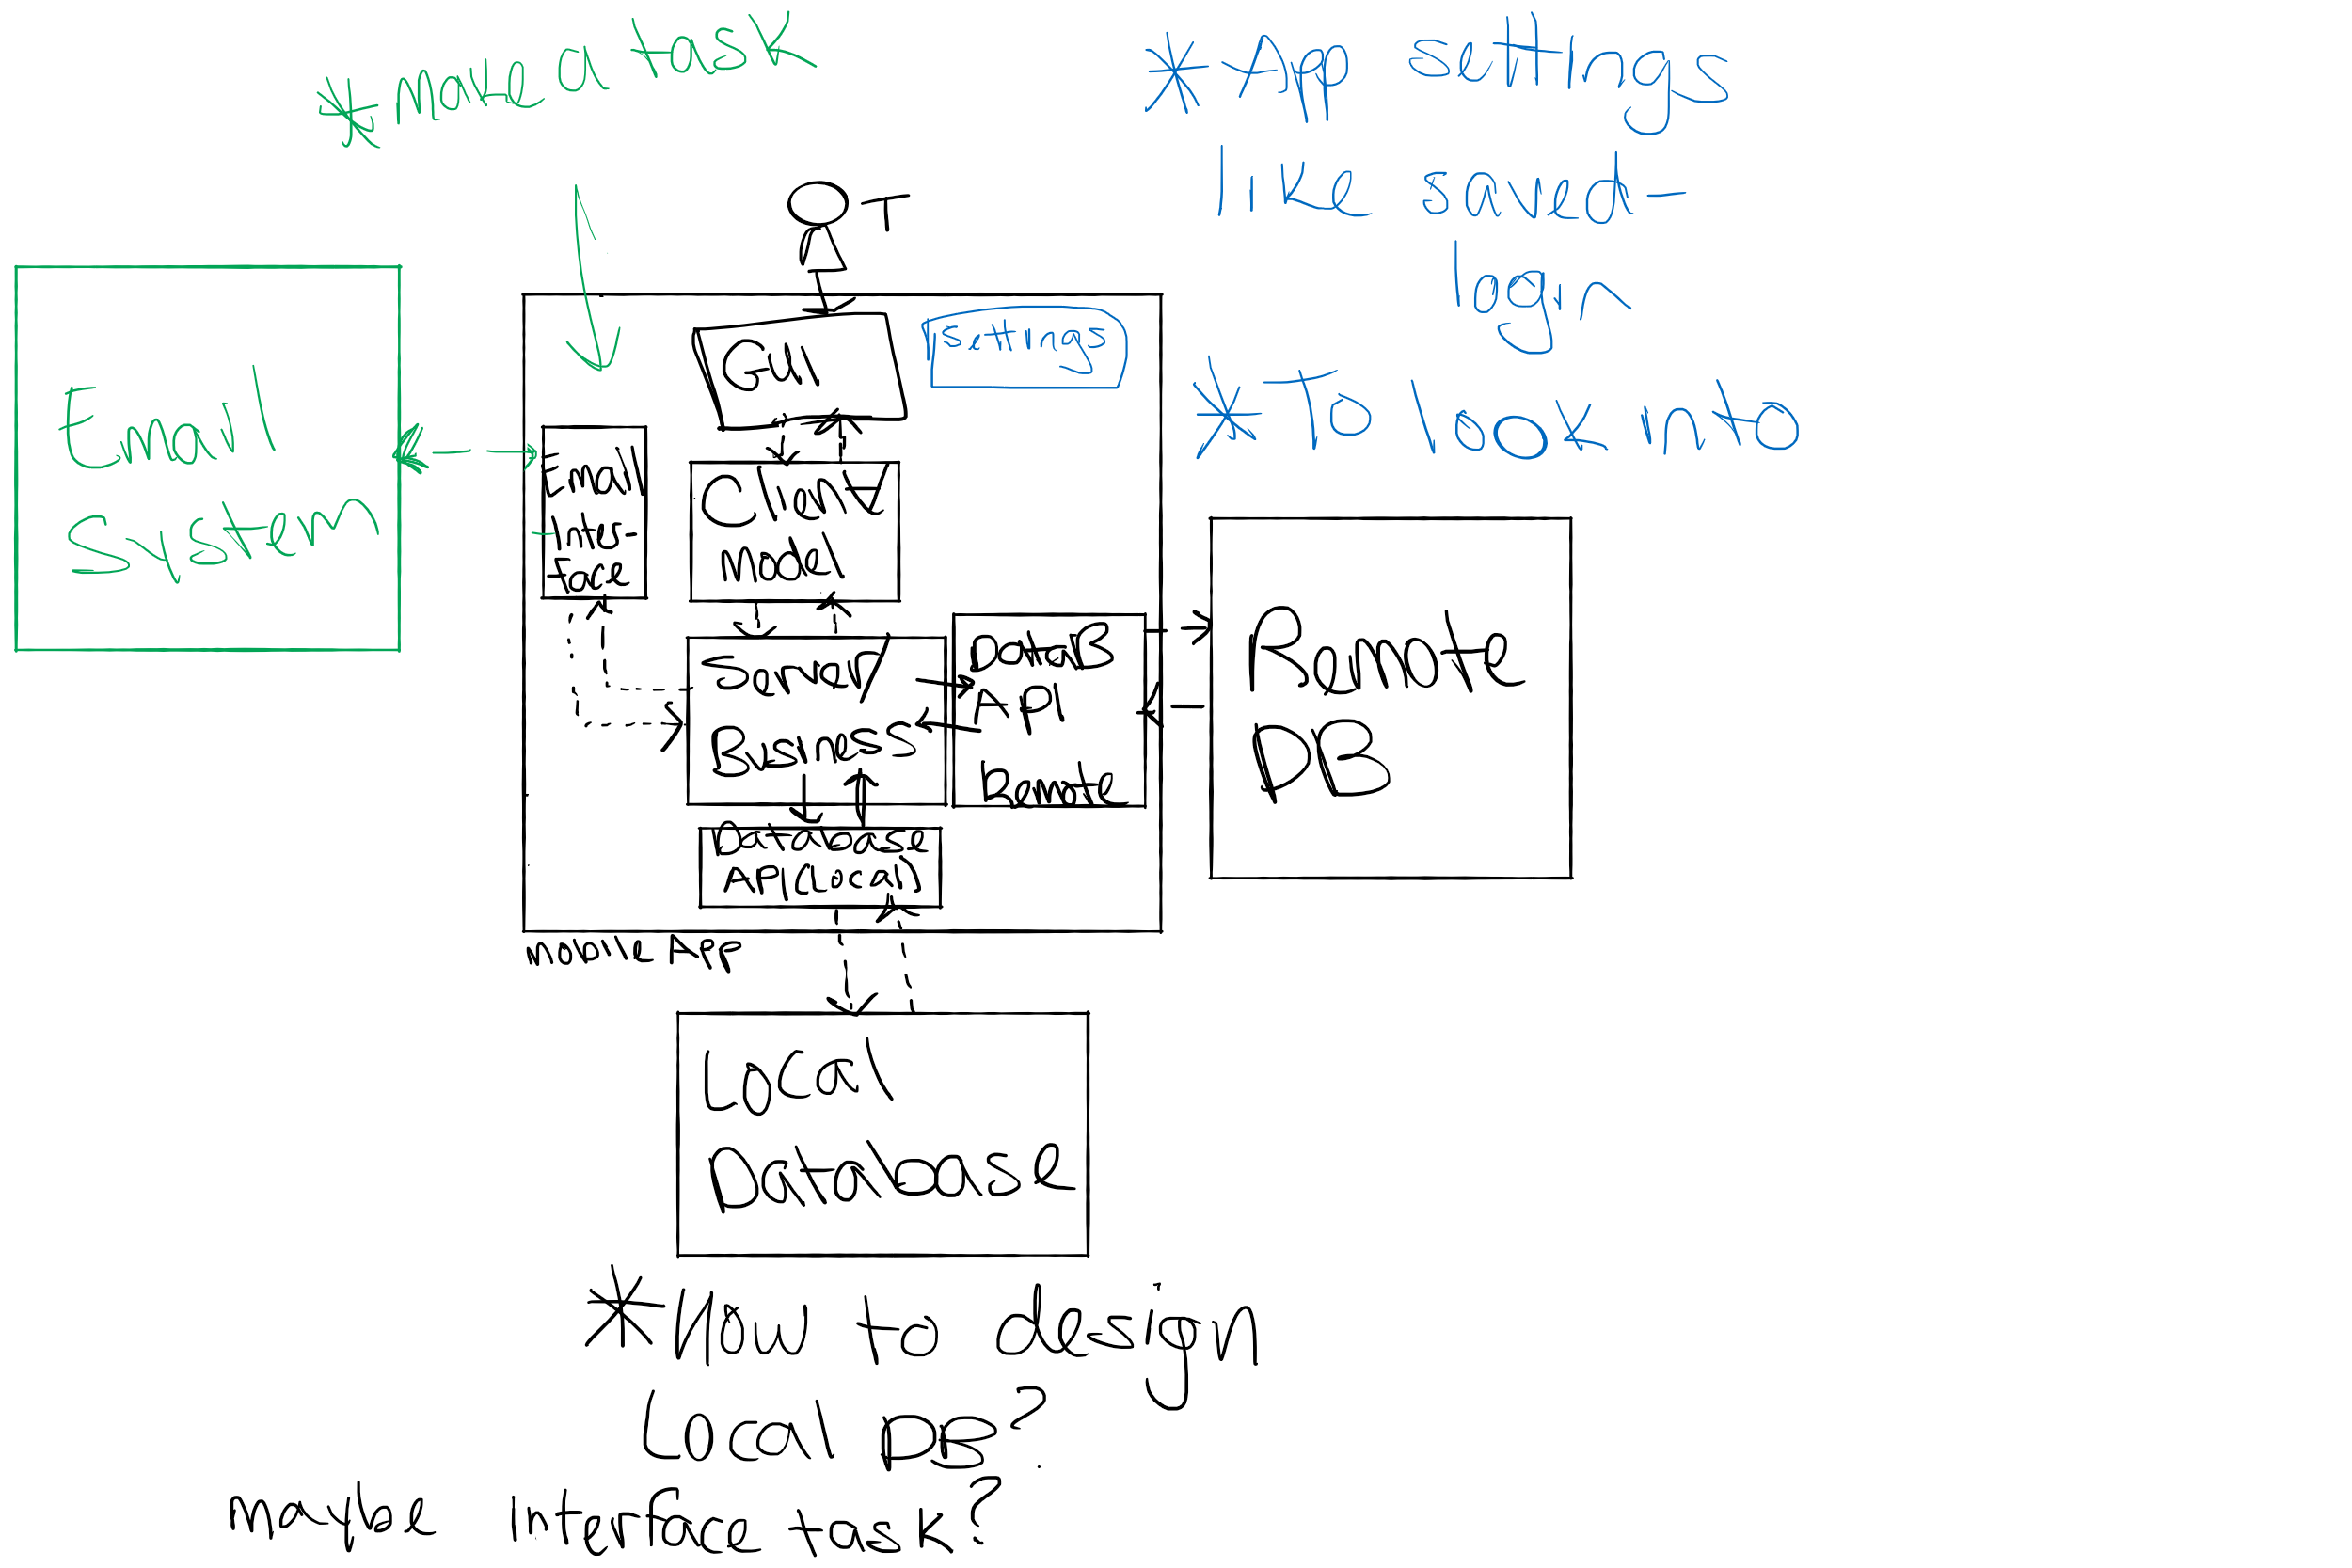 *make a task
*App settings
like saved-
login
*To look into
T
GUI
Settings
Email
System
Email
Inter-
face
Client
Model
Server/
Business
DataB
API
Remote
Remote
DB
Database
API(Local)
Mobile App
Local
Database
*How to design
Local DB?
maybe interface task?